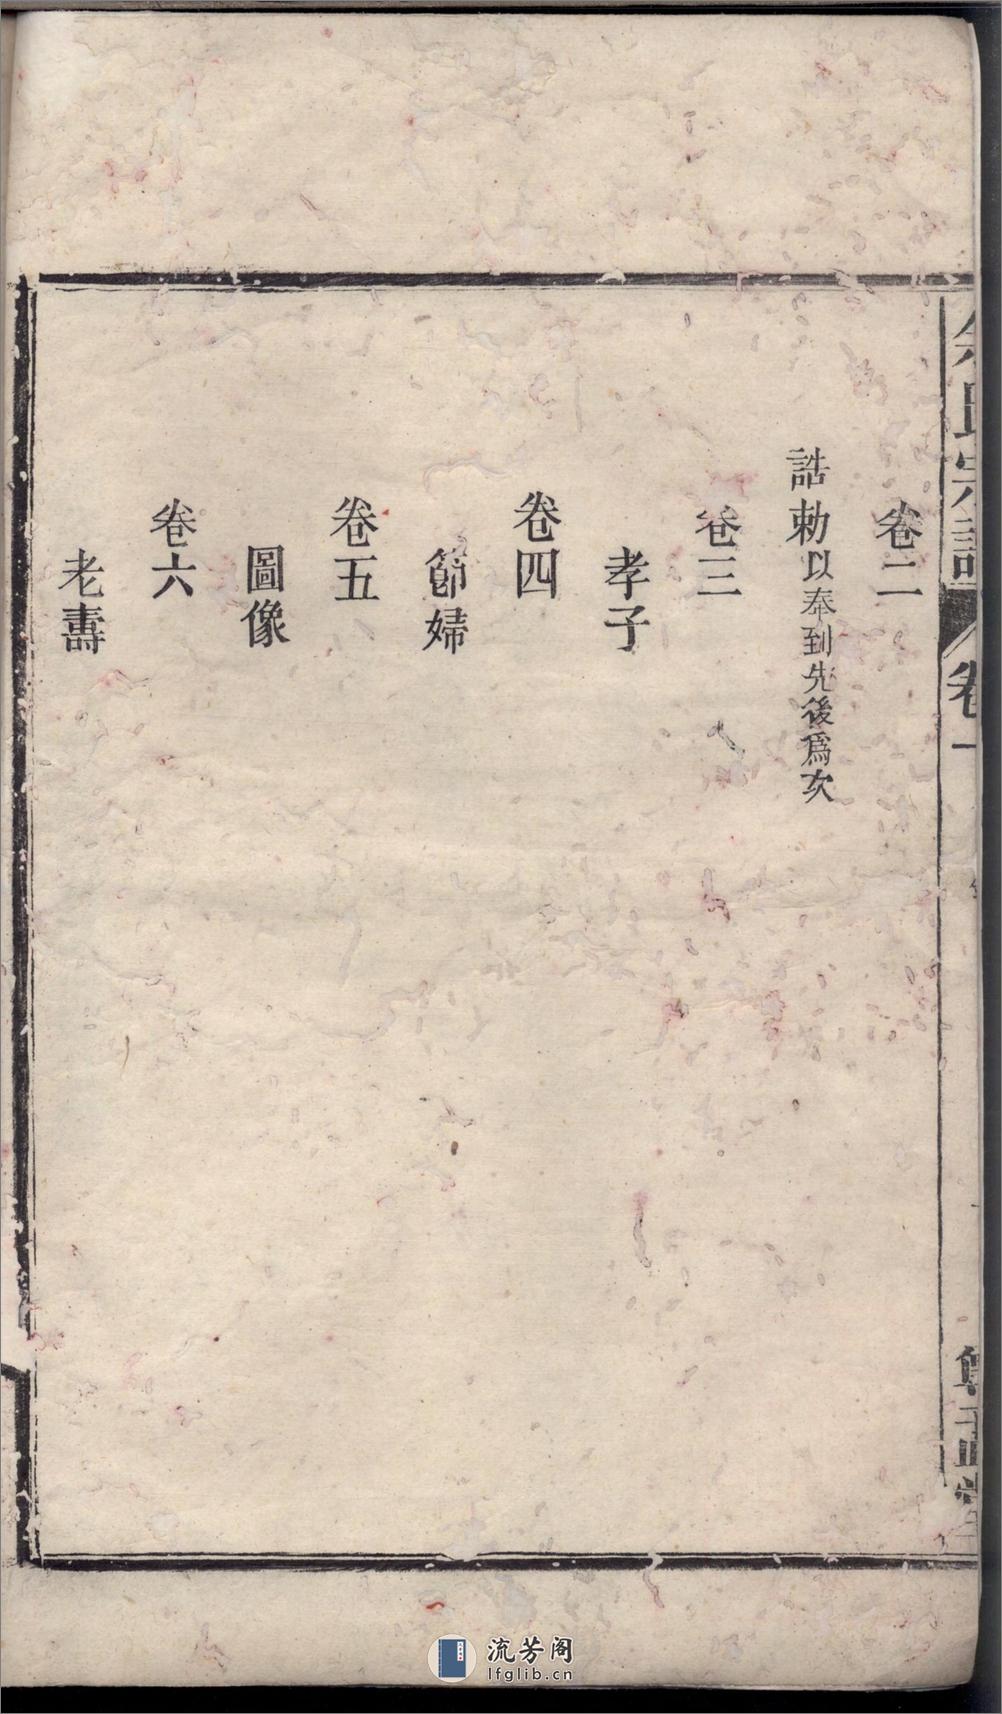 氏宗譜 卷一
卷二
誥勅以奉到先後為次
卷三
孝子
卷四
節婦
卷五
圖像
卷六
老壽
流芳阁
lfglib.cn